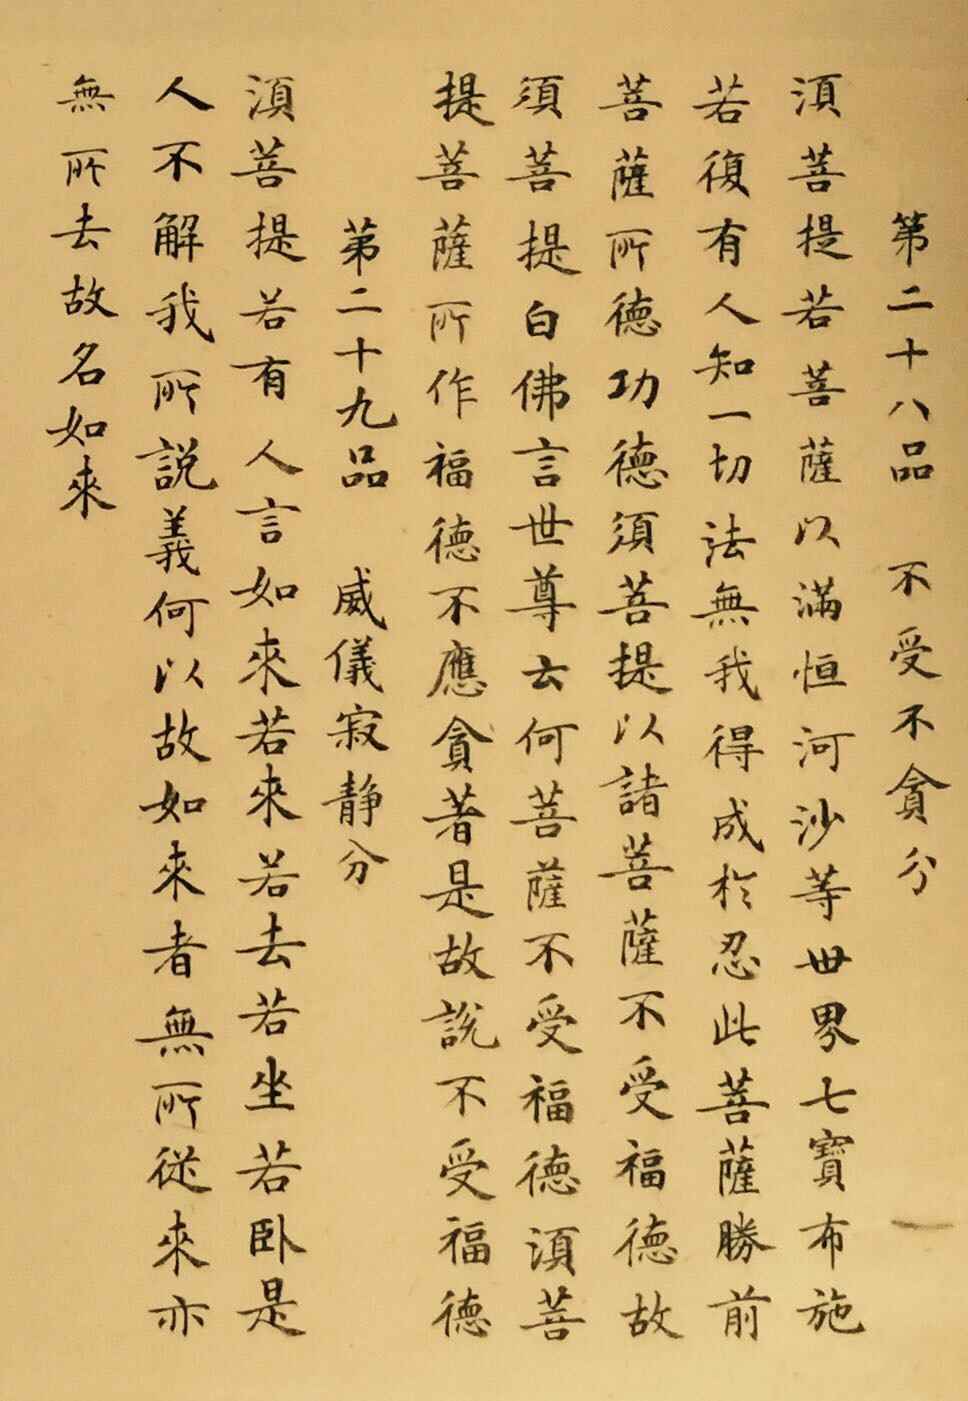 第二十八品　不受不貪分
須菩提若菩薩以滿恒河沙等世界七寶布施
若復有人知一切法無我得成於忍此菩薩勝前
菩薩所德功德須菩提以諸菩薩不受福德故
須菩提白佛言世尊云何菩薩不受福德須菩
提菩薩所作福德不應貪著是故說不受福德
第二十九品　威儀寂靜分
須菩提若有人言如來若來若去若坐若卧是
人不解我所說義何以故如來者無所從來亦
無所去故名如來